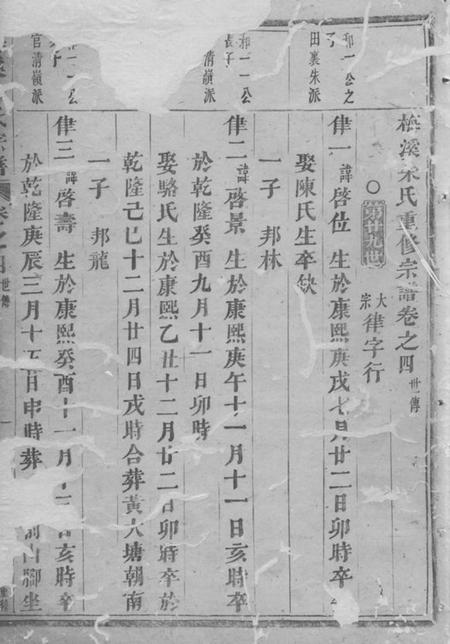 梅溪宋氏重修宗譜卷之四 世傳
第廿九世 大宗律字行
和一公之
田裏朱派
律一 諱啓位 生於康熙庚戌七月廿二日卯時卒
娶陳氏生卒缺
一子 邦林
和一一公
長子
清嶺派
律二 諱啓景 生於康熙庚午十一月十一日亥時卒
於乾隆癸酉九月十一日卯時
娶駱氏生於康熙乙丑十二月廿二日卯時卒於
乾隆己巳十二月廿四日戌時合葬黃大塘朝南
一子 邦龍
公
官清嶺派
律三 諱啓壽 生於康熙癸酉十一月十三日亥時卒
於乾隆庚辰三月十五日申時葬 前山脚坐
卷之四 世傳